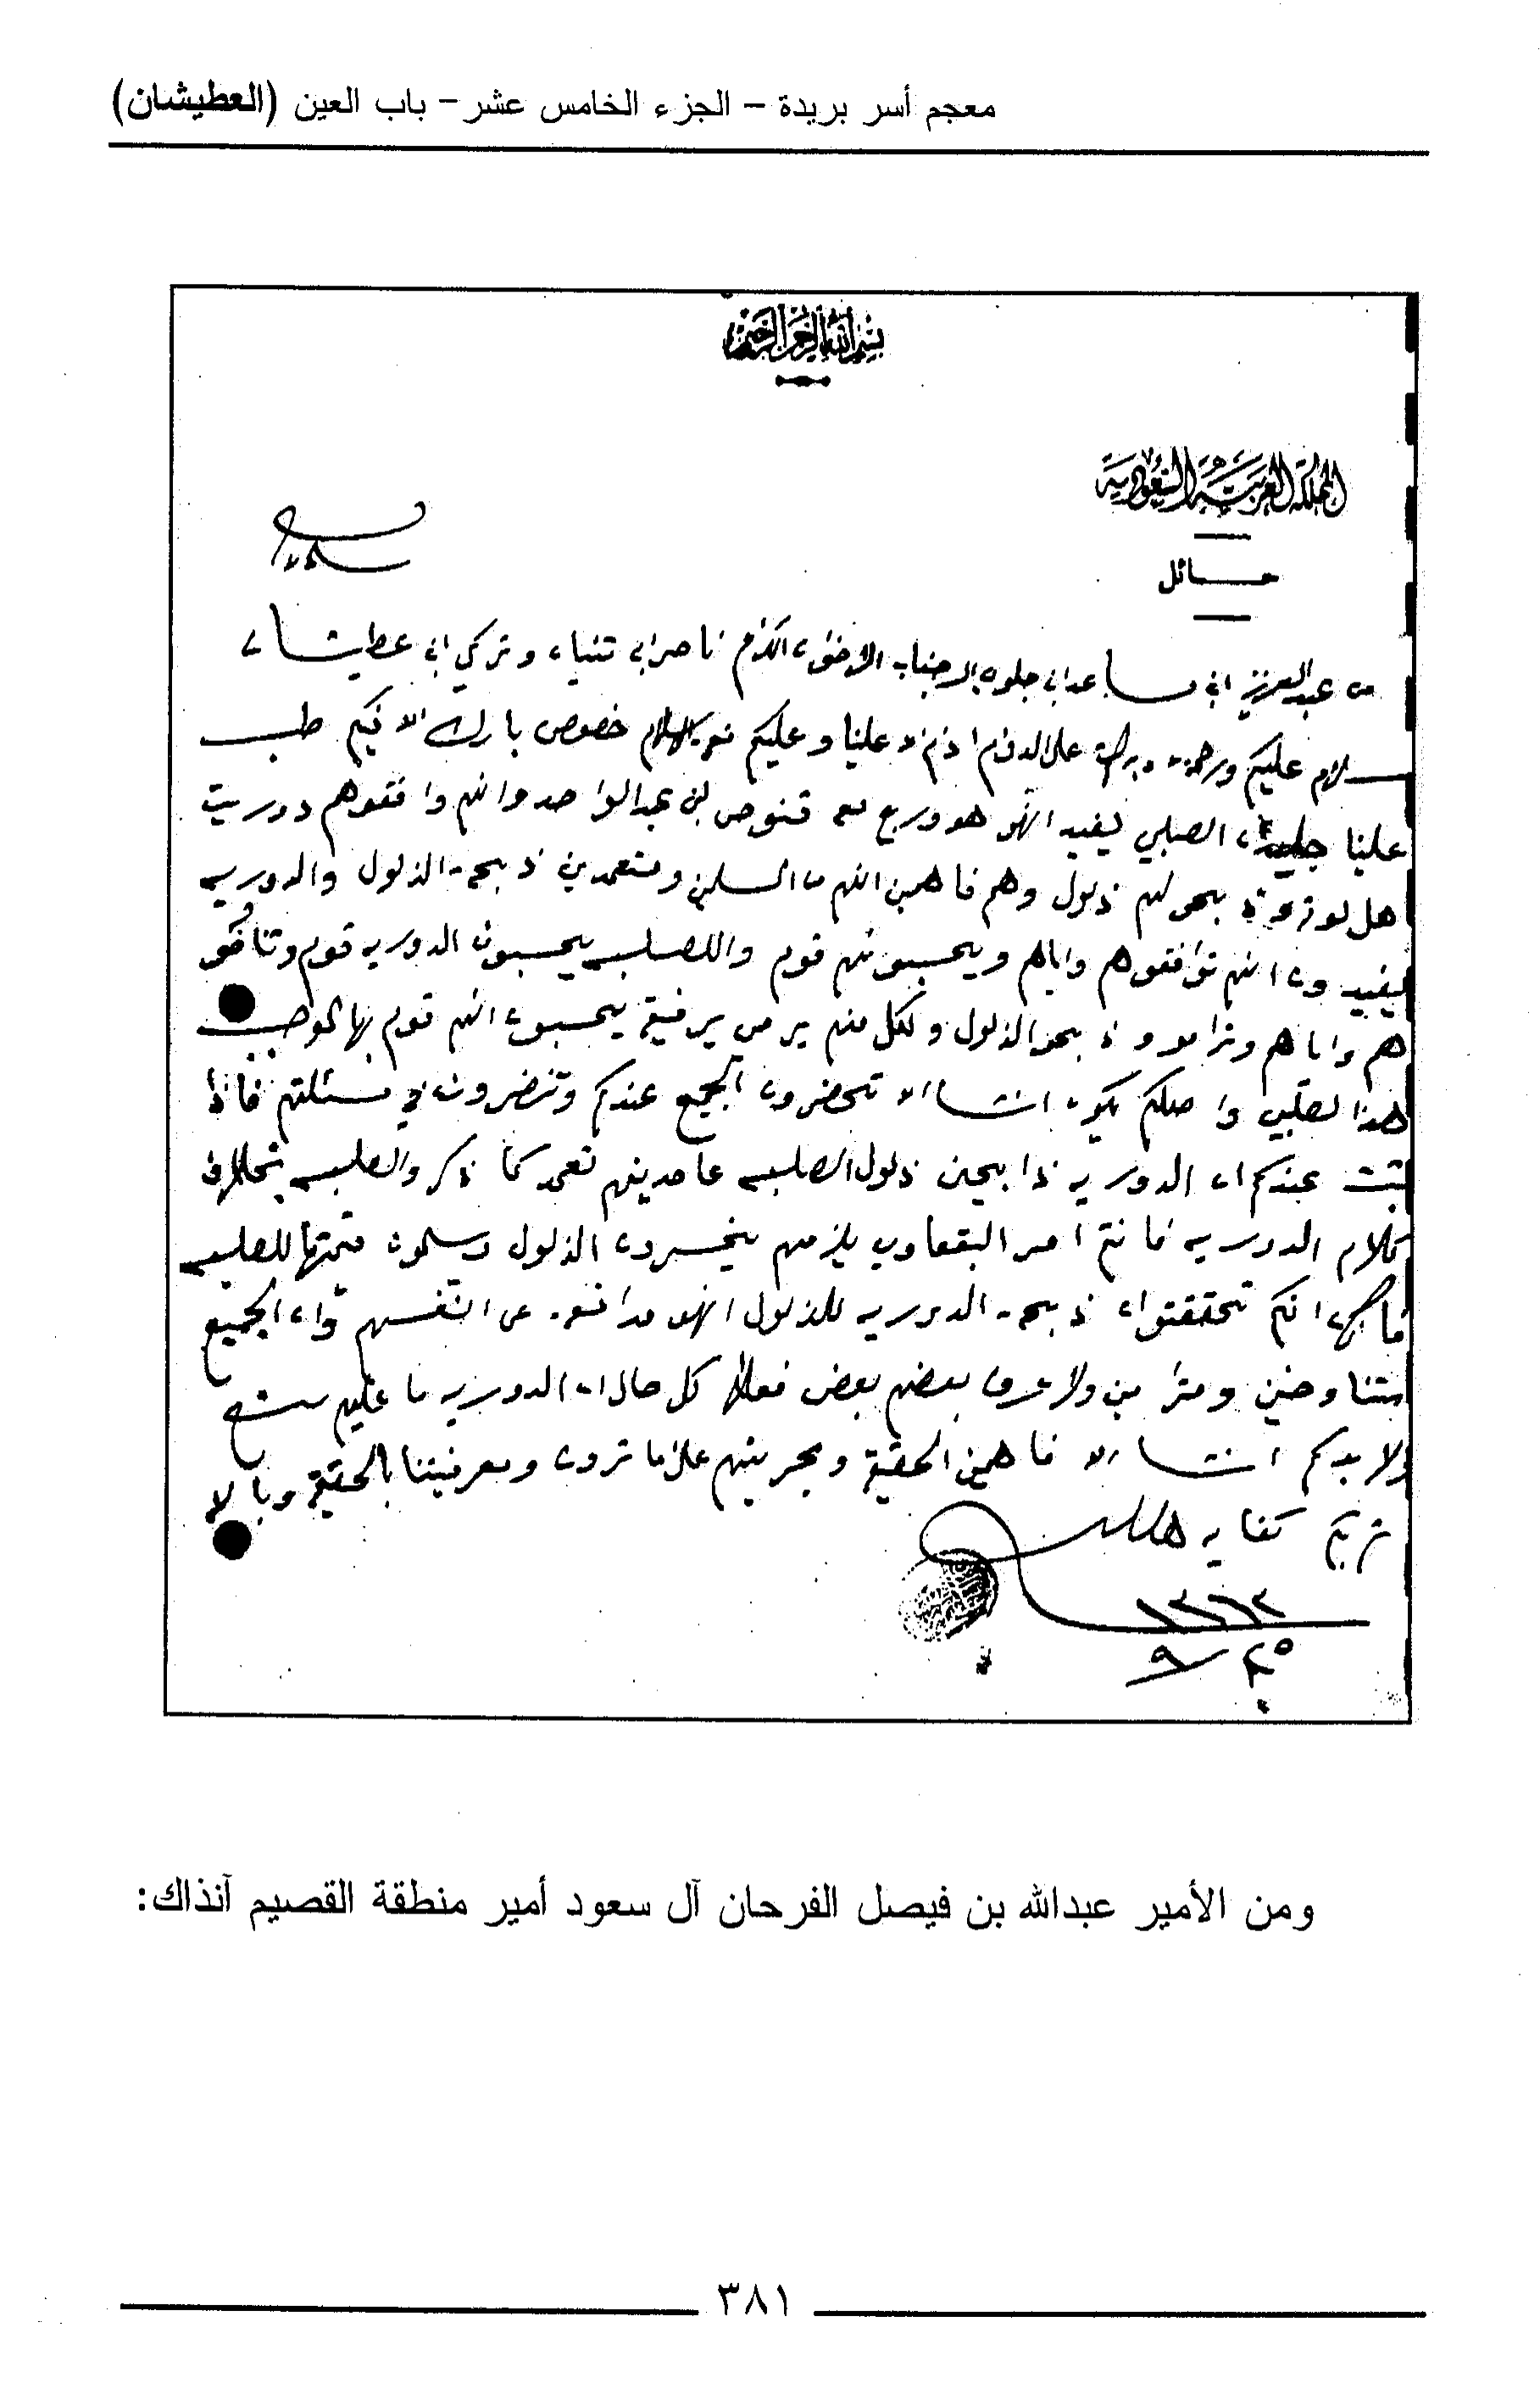 معجم أسر بريدة – الجزء الخامس عشر – باب العين (العطيشان)
بسم الله الرحمن الرحيم
المملكة العربية السعودية
حائل
من عبدالعزيز ابن مساعد ابن جلوي الى جناب الاخوان الكرام ناصر ابن ثنيان وتركي ابن عطيشان
سلام عليكم ورحمة وبركاته على الدوام علينا وعليكم السلام خصوص بارك الله فيكم طب
علينا الصلبي يفيد انهو هو وربع معه قنوص عبدالواحد وانهم وافقوهم دوريت
ذلول وهم فاهمين انهم من المسلمين ومتعمدين ذبحة الذلول والدوريه
يفيدون انهم توافقوهم واياهم ويحسبونهم قوم والصلبه يحسبون الدوريه قوم وتناوخو
هم واياهم وتراموو الذلول ولكل منهم يحسبون انهم قوم بها لموجب
هذا الصلبي واصلكم يكون انشاالله تحضرون الجميع عندكم وتنضرون في مسئلتهم فاذا
ثبت عندكم ان الدوريه ذابحين ذلول الصلبه عامدينهم تعمد كما ذكر والصلبه
كلام الدوريه فانتم يلزمهم يخسرون الذلول ويسلمون قيمتها للصلبه
انكم تحققتوا ان ذبحة الدوريه للذلول انهو مدافعه عن انفسهم وان الجميع
متناوخين ومترامين ولا عرف بعضهم بعض كل حال ان الدوريه ما عليهم شي
ولا بدكم انشاالله فاهمين الحقيقة ومجرينهم على ما ترون ومعرفيننا بالحقيقة وبالا
نريكم كفايه والسلام
١٣٦٢
٩ ٢٥
ومن الأمير عبدالله بن فيصل الفرحان آل سعود أمير منطقة القصيم آنذاك:
٣٨١